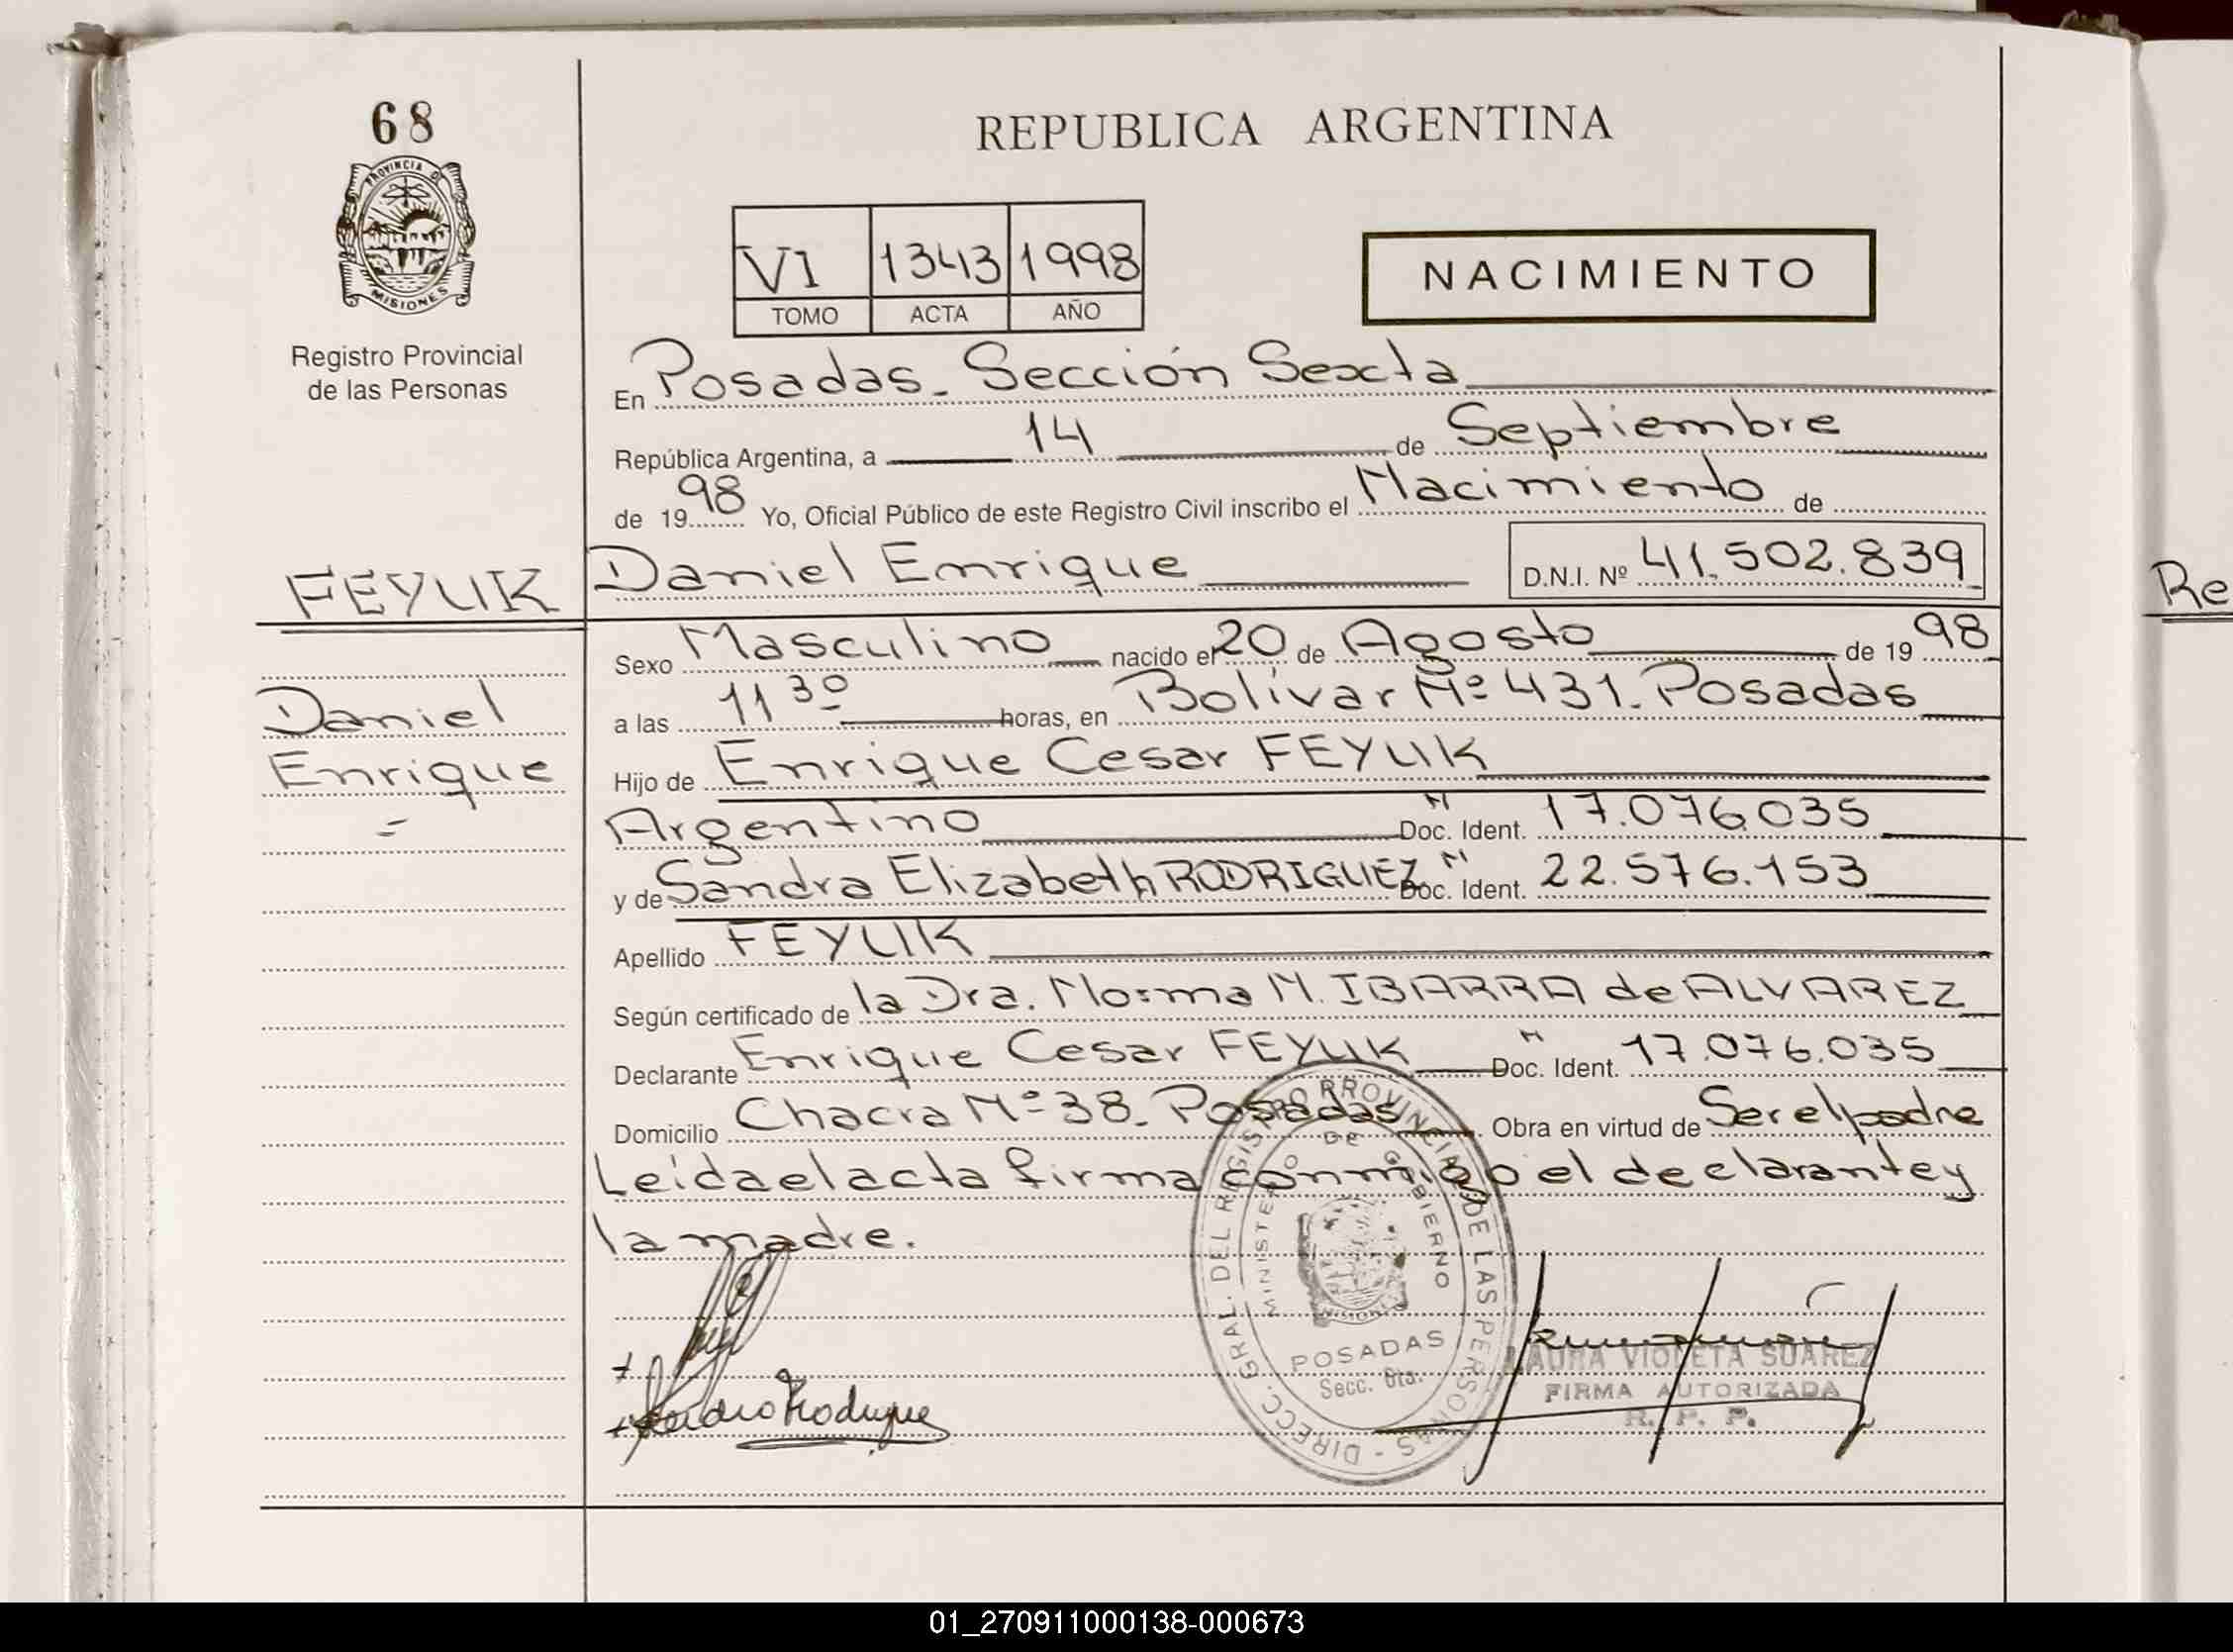 68
PROVINCIA DE
MISIONES
Registro Provincial
de las Personas
REPUBLICA ARGENTINA
VI 1343 1998
TOMO ACTA AÑO
NACIMIENTO
En Posadas - Sección Sexta
República Argentina, a 14 de Septiembre
de 1998 Yo, Oficial Público de este Registro Civil inscribo el Nacimiento de
FEYUK
Daniel Enrique D.N.I. Nº 41.502.839
Sexo Masculino nacido el 20 de Agosto de 1998
Daniel
a las 11 30 horas, en Bolívar Nº 431. Posadas
Enrique
Hijo de Enrique Cesar FEYUK
Argentino Doc. Ident. N 17.076.035
y de Sandra Elizabeth RODRIGUEZ Doc. Ident. N 22.576.153
Apellido FEYUK
Según certificado de la Dra. Norma N. IBARRA de ALVAREZ
Declarante Enrique Cesar FEYUK Doc. Ident. N 17.076.035
Domicilio Chacra Nº 38. Posadas Obra en virtud de Ser el padre
Leída el acta firma conmigo el declarante y
la madre.
DIRECC. GRAL. DEL REGISTRO PROVINCIAL DE LAS PERSONAS -
MINISTERIO DE GOBIERNO
POSADAS
Secc. 6ta.
LAURA VIOLETA SUAREZ
FIRMA AUTORIZADA
R. P. P.
Re
01_270911000138-000673